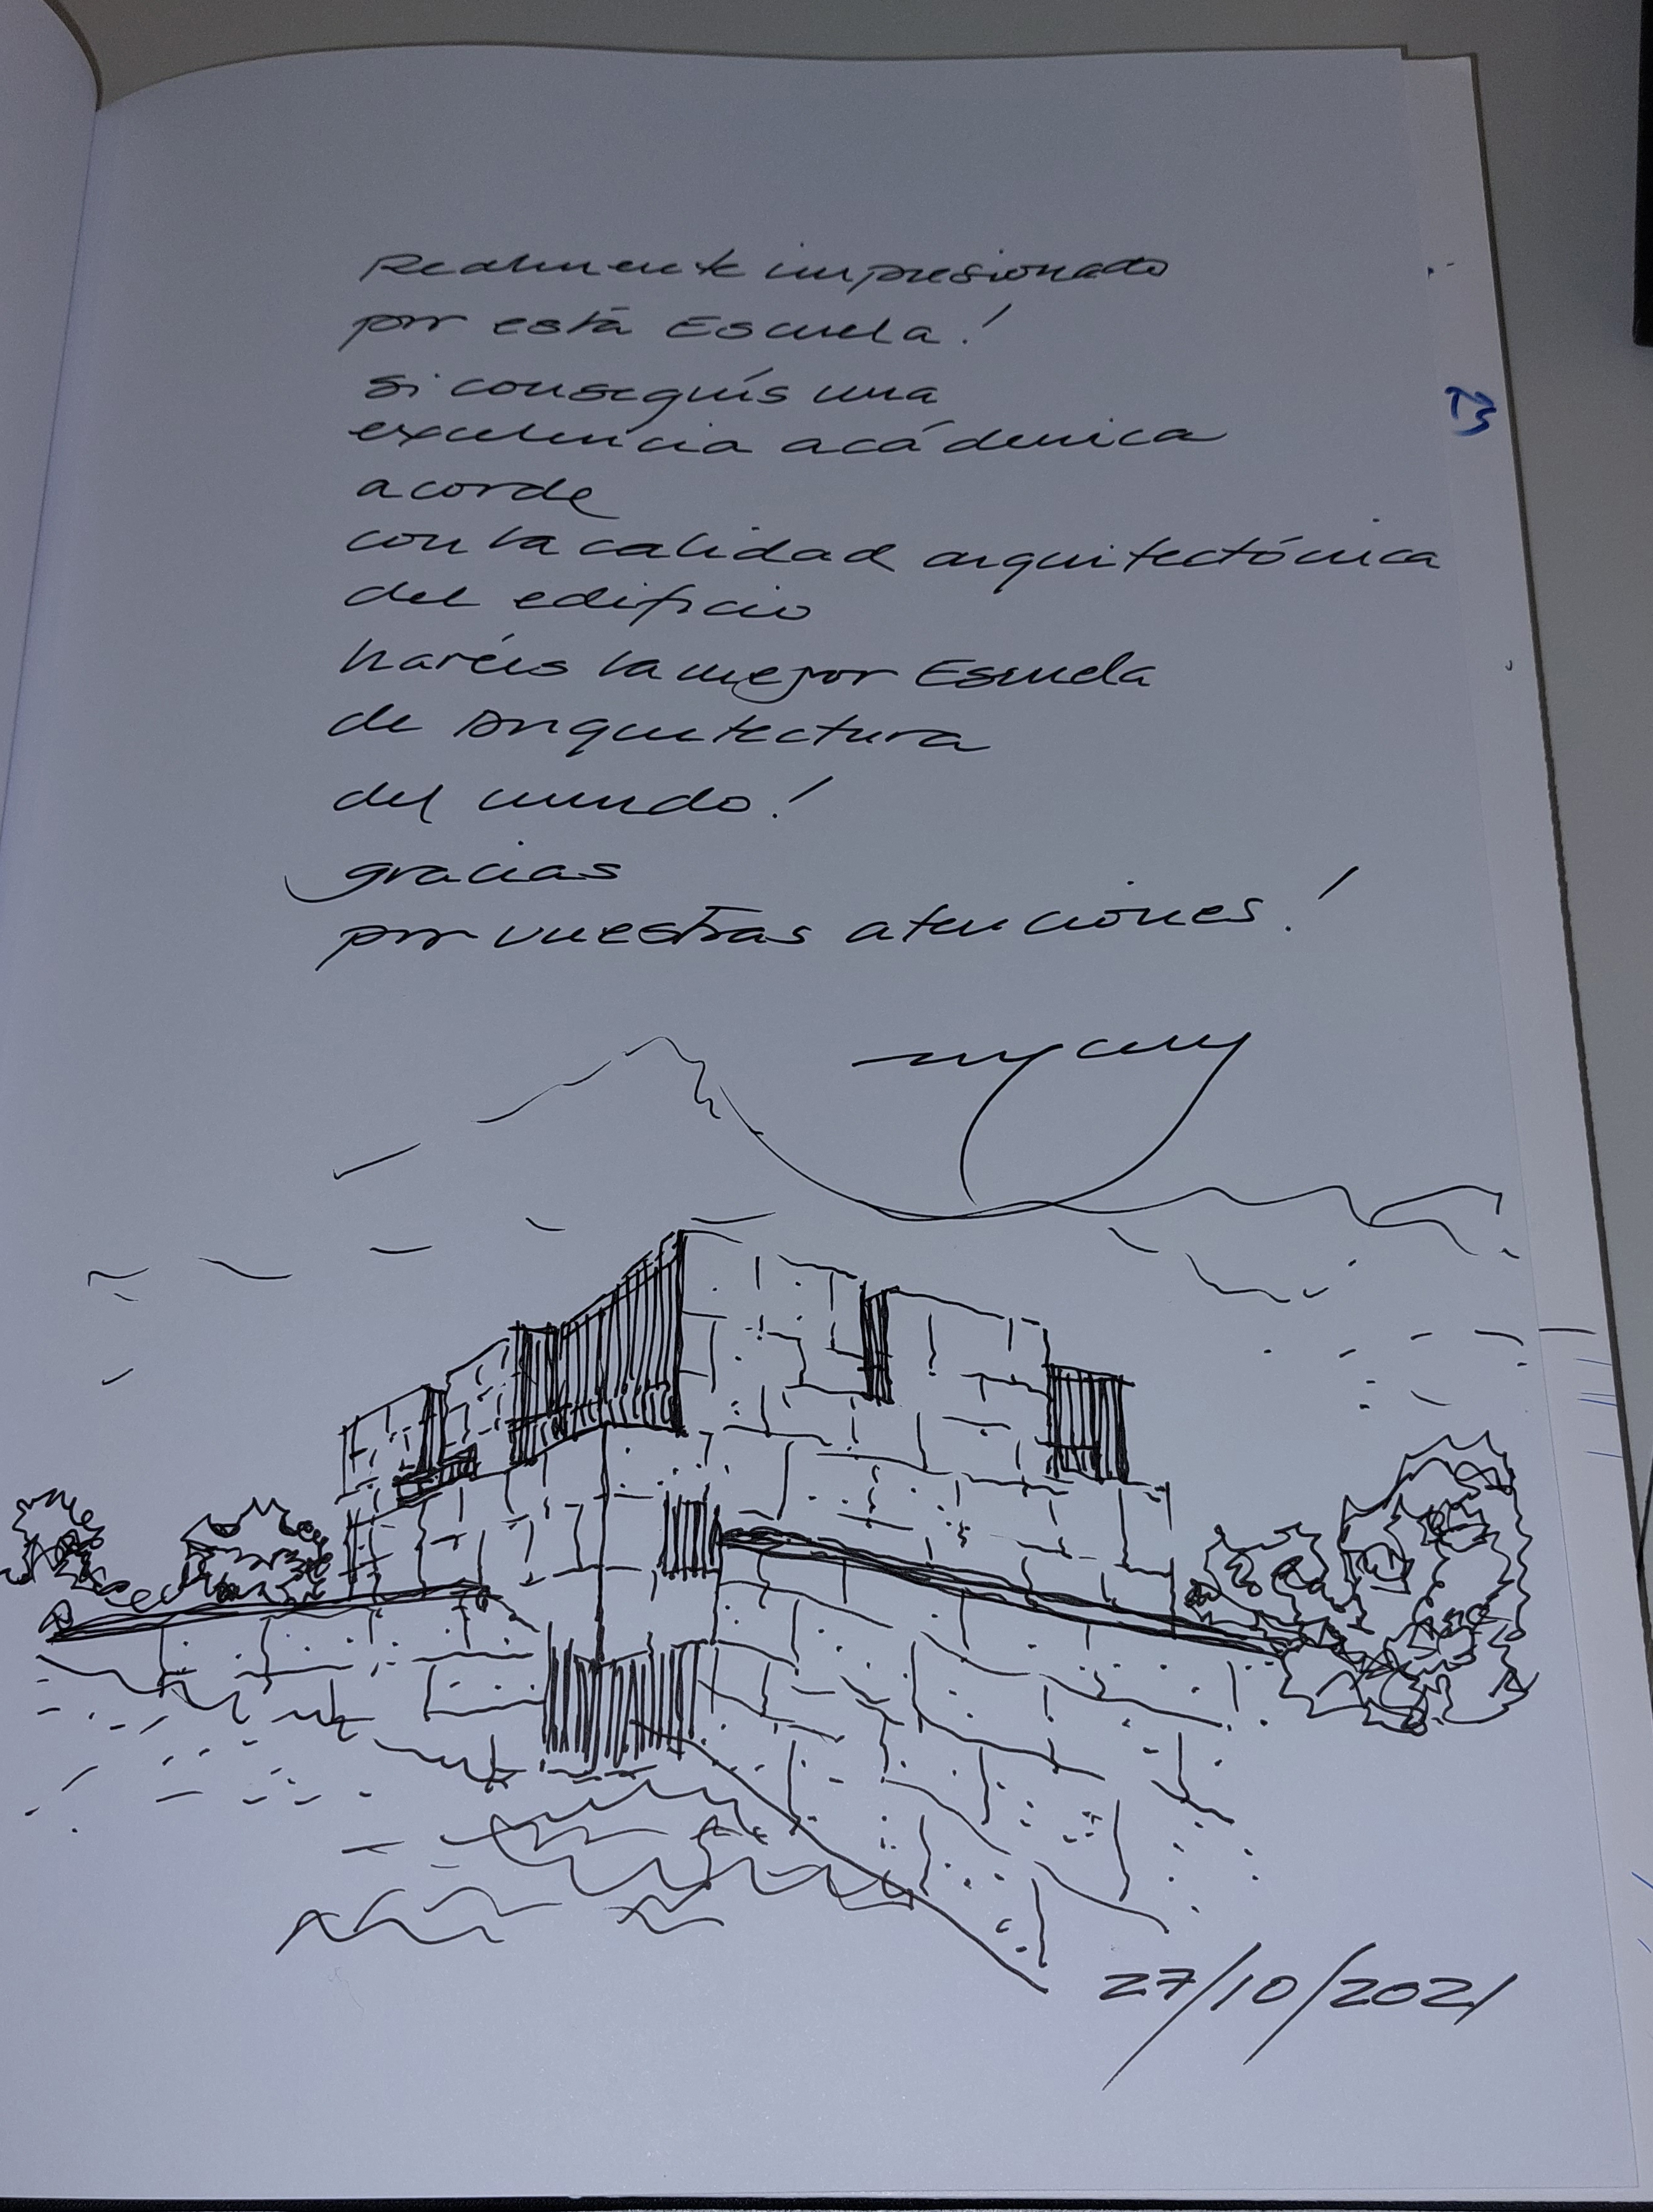 Realmente impresionado
por está Escuela!
si conseguís una
excelencia acádemica
acorde
con la calidad arquitectónica
del edificio
haréis la mejor Escuela
de Arquitectura
del mundo!
gracias
por vuestras atenciones!
27/10/2021